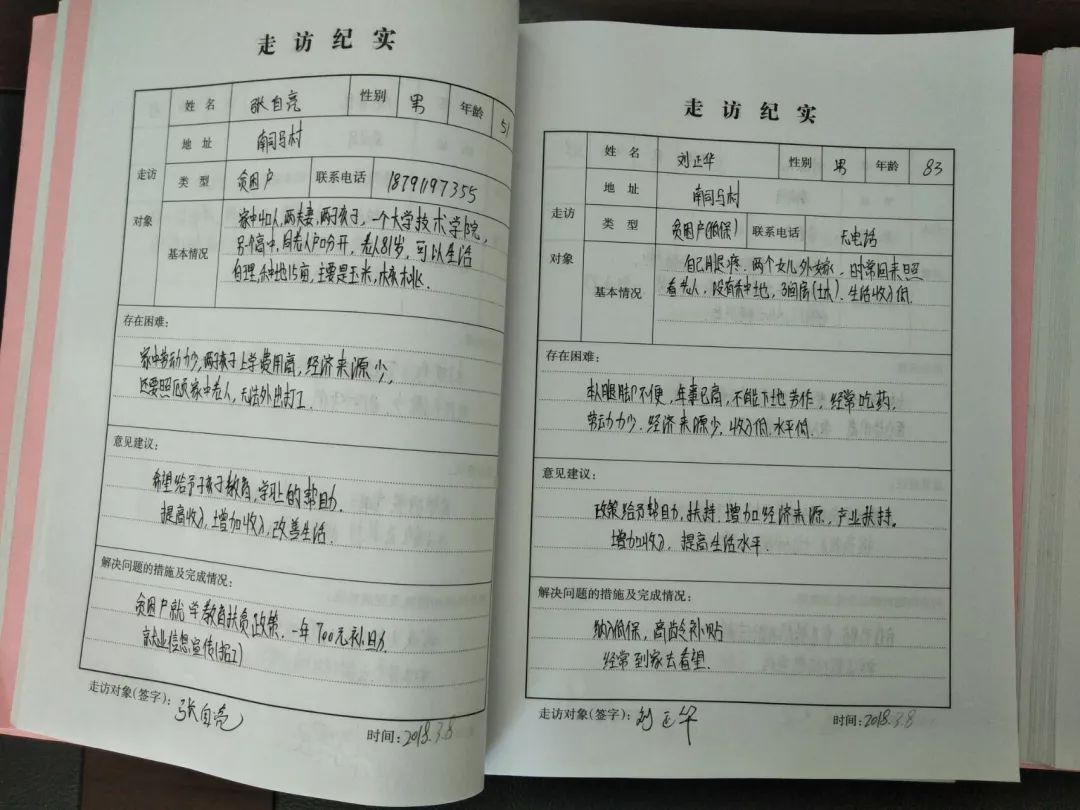 走访纪实
走访对象
姓名 张自亮 性别 男 年龄 51
地址 南司马村
类型 贫困户 联系电话 18791197355
基本情况
家中4口人,两夫妻,两个孩子,一个大学技术学院,
另个高中,同老人户口分开,老人81岁,可以生活
自理,种地15亩,主要是玉米,核桃.
存在困难:
家中劳动力少,两孩子上学费用高,经济来源少,
还要照顾家中老人,无法外出打工.
意见建议:
希望给予孩子教育,学业上的帮助.
提高收入,增加收入,改善生活.
解决问题的措施及完成情况:
贫困户就学教育扶贫政策,一年700元补助
就业信息宣传(招工)
走访对象(签字):张自亮
时间:2018.3.8
走访纪实
走访对象
姓名 刘正华 性别 男 年龄 83
地址 南司马村
类型 贫困户(低保) 联系电话 无电话
基本情况
自己腿疼,两个女儿外嫁,时常回来照
看老人,没有种地,3间房(土木),生活收入低.
存在困难:
本人腿脚不便,年事已高,不能下地劳作,经常吃药,
劳动力少,经济来源少,收入低,水平低.
意见建议:
政策给予帮助,扶持,增加经济来源,产业扶持,
增加收入,提高生活水平.
解决问题的措施及完成情况:
纳入低保,高龄补贴
经常到家去看望.
走访对象(签字):刘正华
时间:2018.3.8